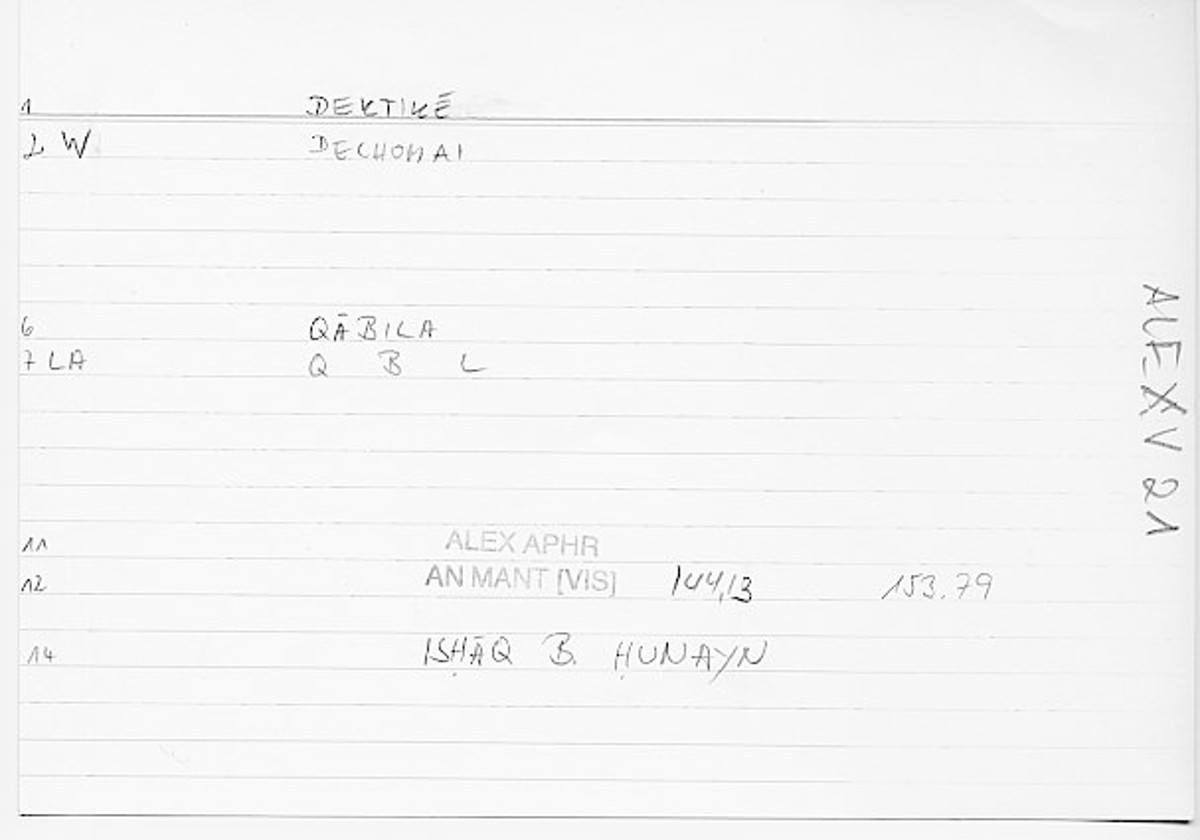 1 DEKTIKĒ
2 W DECHOMAI
6 QĀBILA
7 LA Q B L
11 ALEX APHR
12 AN MANT [VIS] 144,13 153.79
14 ISḤĀQ B. ḤUNAYN
ALEX V 21